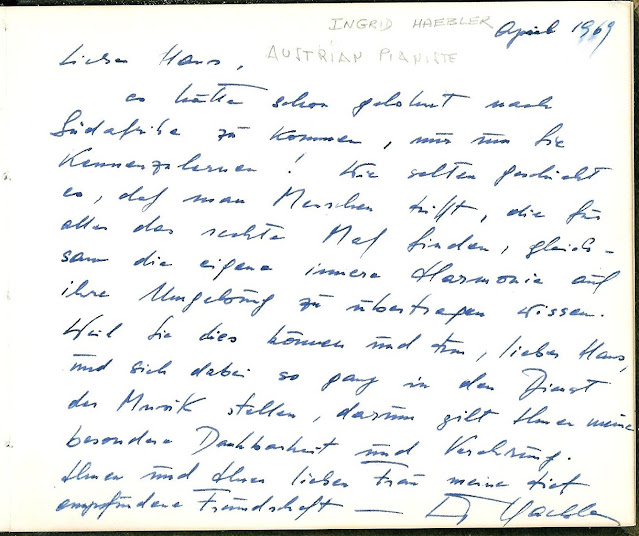 INGRID HAEBLER April 1969
Lieber Hans, AUSTRIAN PIANISTE
es hätte schon gelohnt nach
Südafrika zu kommen, nur um Sie
kennenzulernen! Wie selten geschieht
es, daß man Menschen trifft, die für
alles das rechte Maß finden, gleich-
sam die eigene innere Harmonie auf
ihre Umgebung zu übertragen wissen.
Weil Sie dies können und tun, lieber Hans,
und sich dabei so ganz in den Dienst
der Musik stellen, darum gilt Ihnen meine
besondere Dankbarkeit und Verehrung.
Ihnen und Ihrer lieben Frau meine tief
empfundene Freundschaft — Haebler